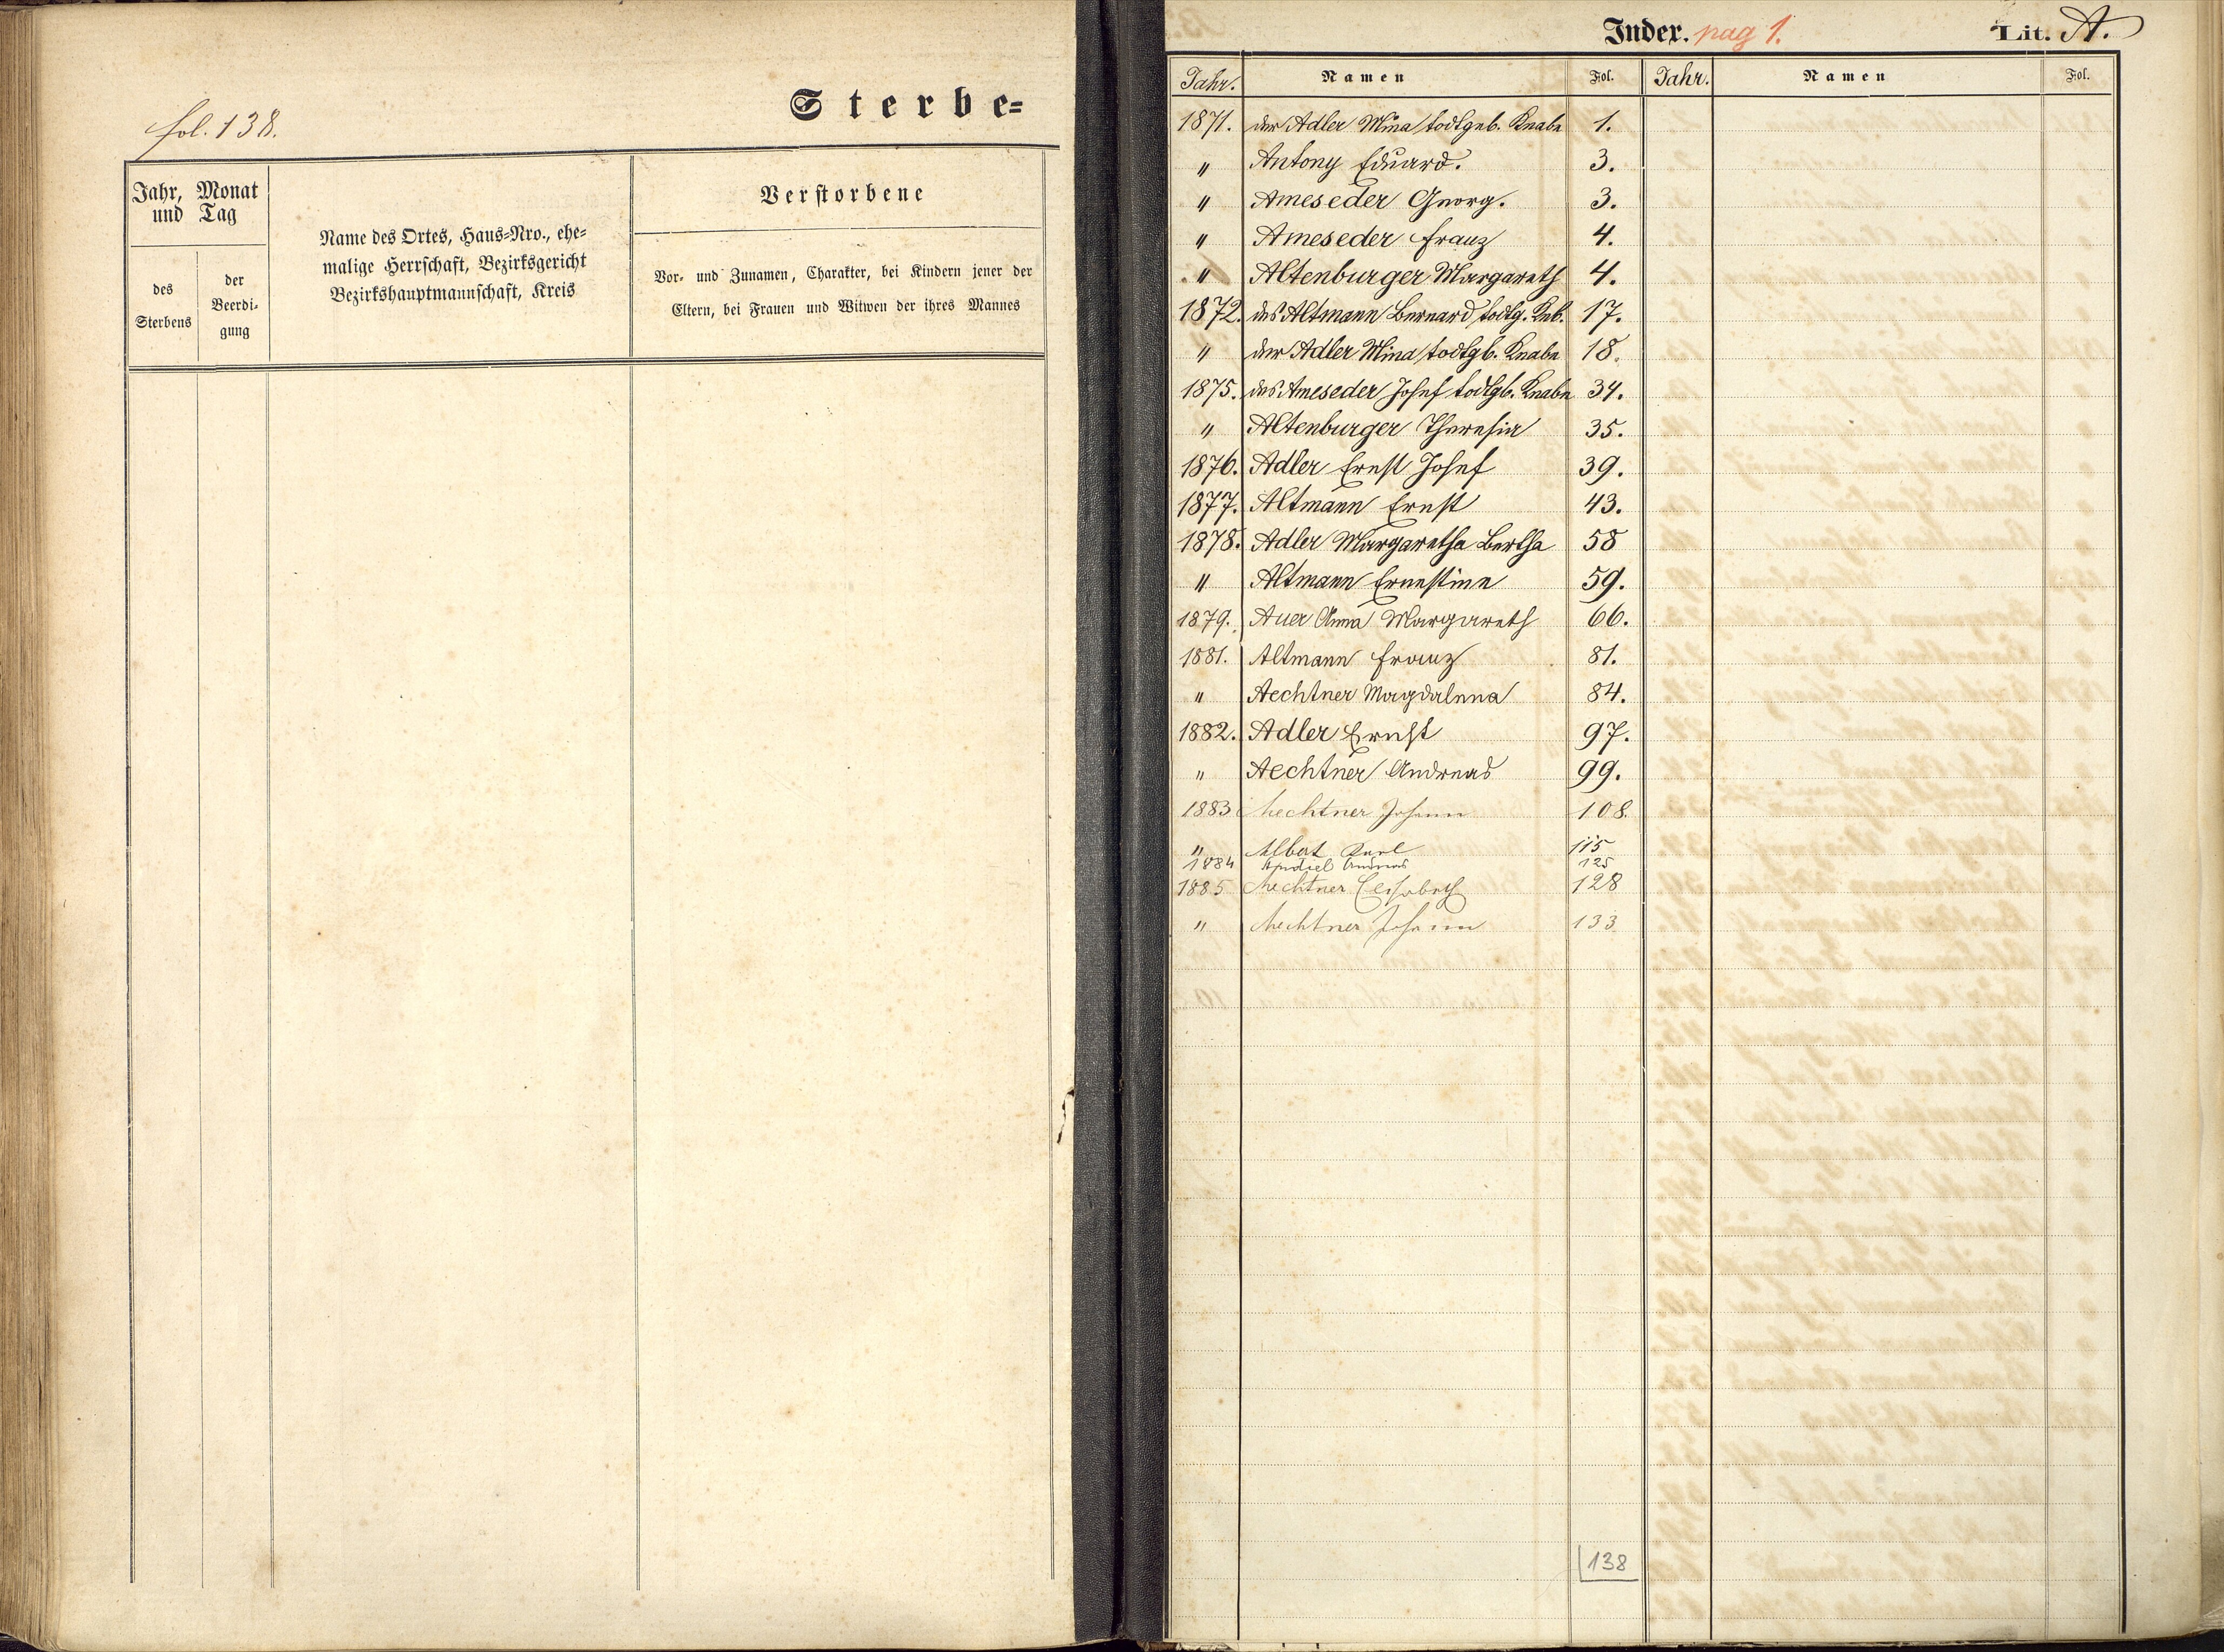 fol. 138.
Sterbe=
Jahr, Monat
und Tag
des
Sterbens
der
Beerdi-
gung
Name des Ortes, Haus=Nro., ehe=
malige Herrschaft, Bezirksgericht
Bezirkshauptmannschaft, Kreis
Verstorbene
Vor- und Zunamen, Charakter, bei Kindern jener der
Eltern, bei Frauen und Witwen der ihres Mannes
Index. pag 1. Lit. A.
Jahr. Namen Fol. Jahr. Namen Fol.
1871. der Adler Mina todtgeb. Knabe 1.
" Antony Eduard. 3.
" Ameseder Georg. 3.
" Ameseder Franz 4.
" Altenburger Margareth 4.
1872. des Altmann Bernard todtg. Knb. 17.
" der Adler Mina todtgb. Knabe 18.
1875. des Ameseder Josef todtgb. Knabe 34.
" Altenburger Theresia 35.
1876. Adler Ernst Josef 39.
1877. Altmann Ernst 43.
1878. Adler Margaretha Bertha 58
" Altmann Ernestine 59.
1879. Auer Anna Margareth 66.
1881. Altmann Franz 81.
" Aechtner Magdalena 84.
1882. Adler Ernst 97.
" Aechtner Andreas 99.
1883 Aechtner Johann 108.
" Albert Karl 115
1884 Andreas 125
1885 Aechtner Elisabeth 128
" Aechtner Johann 133
138